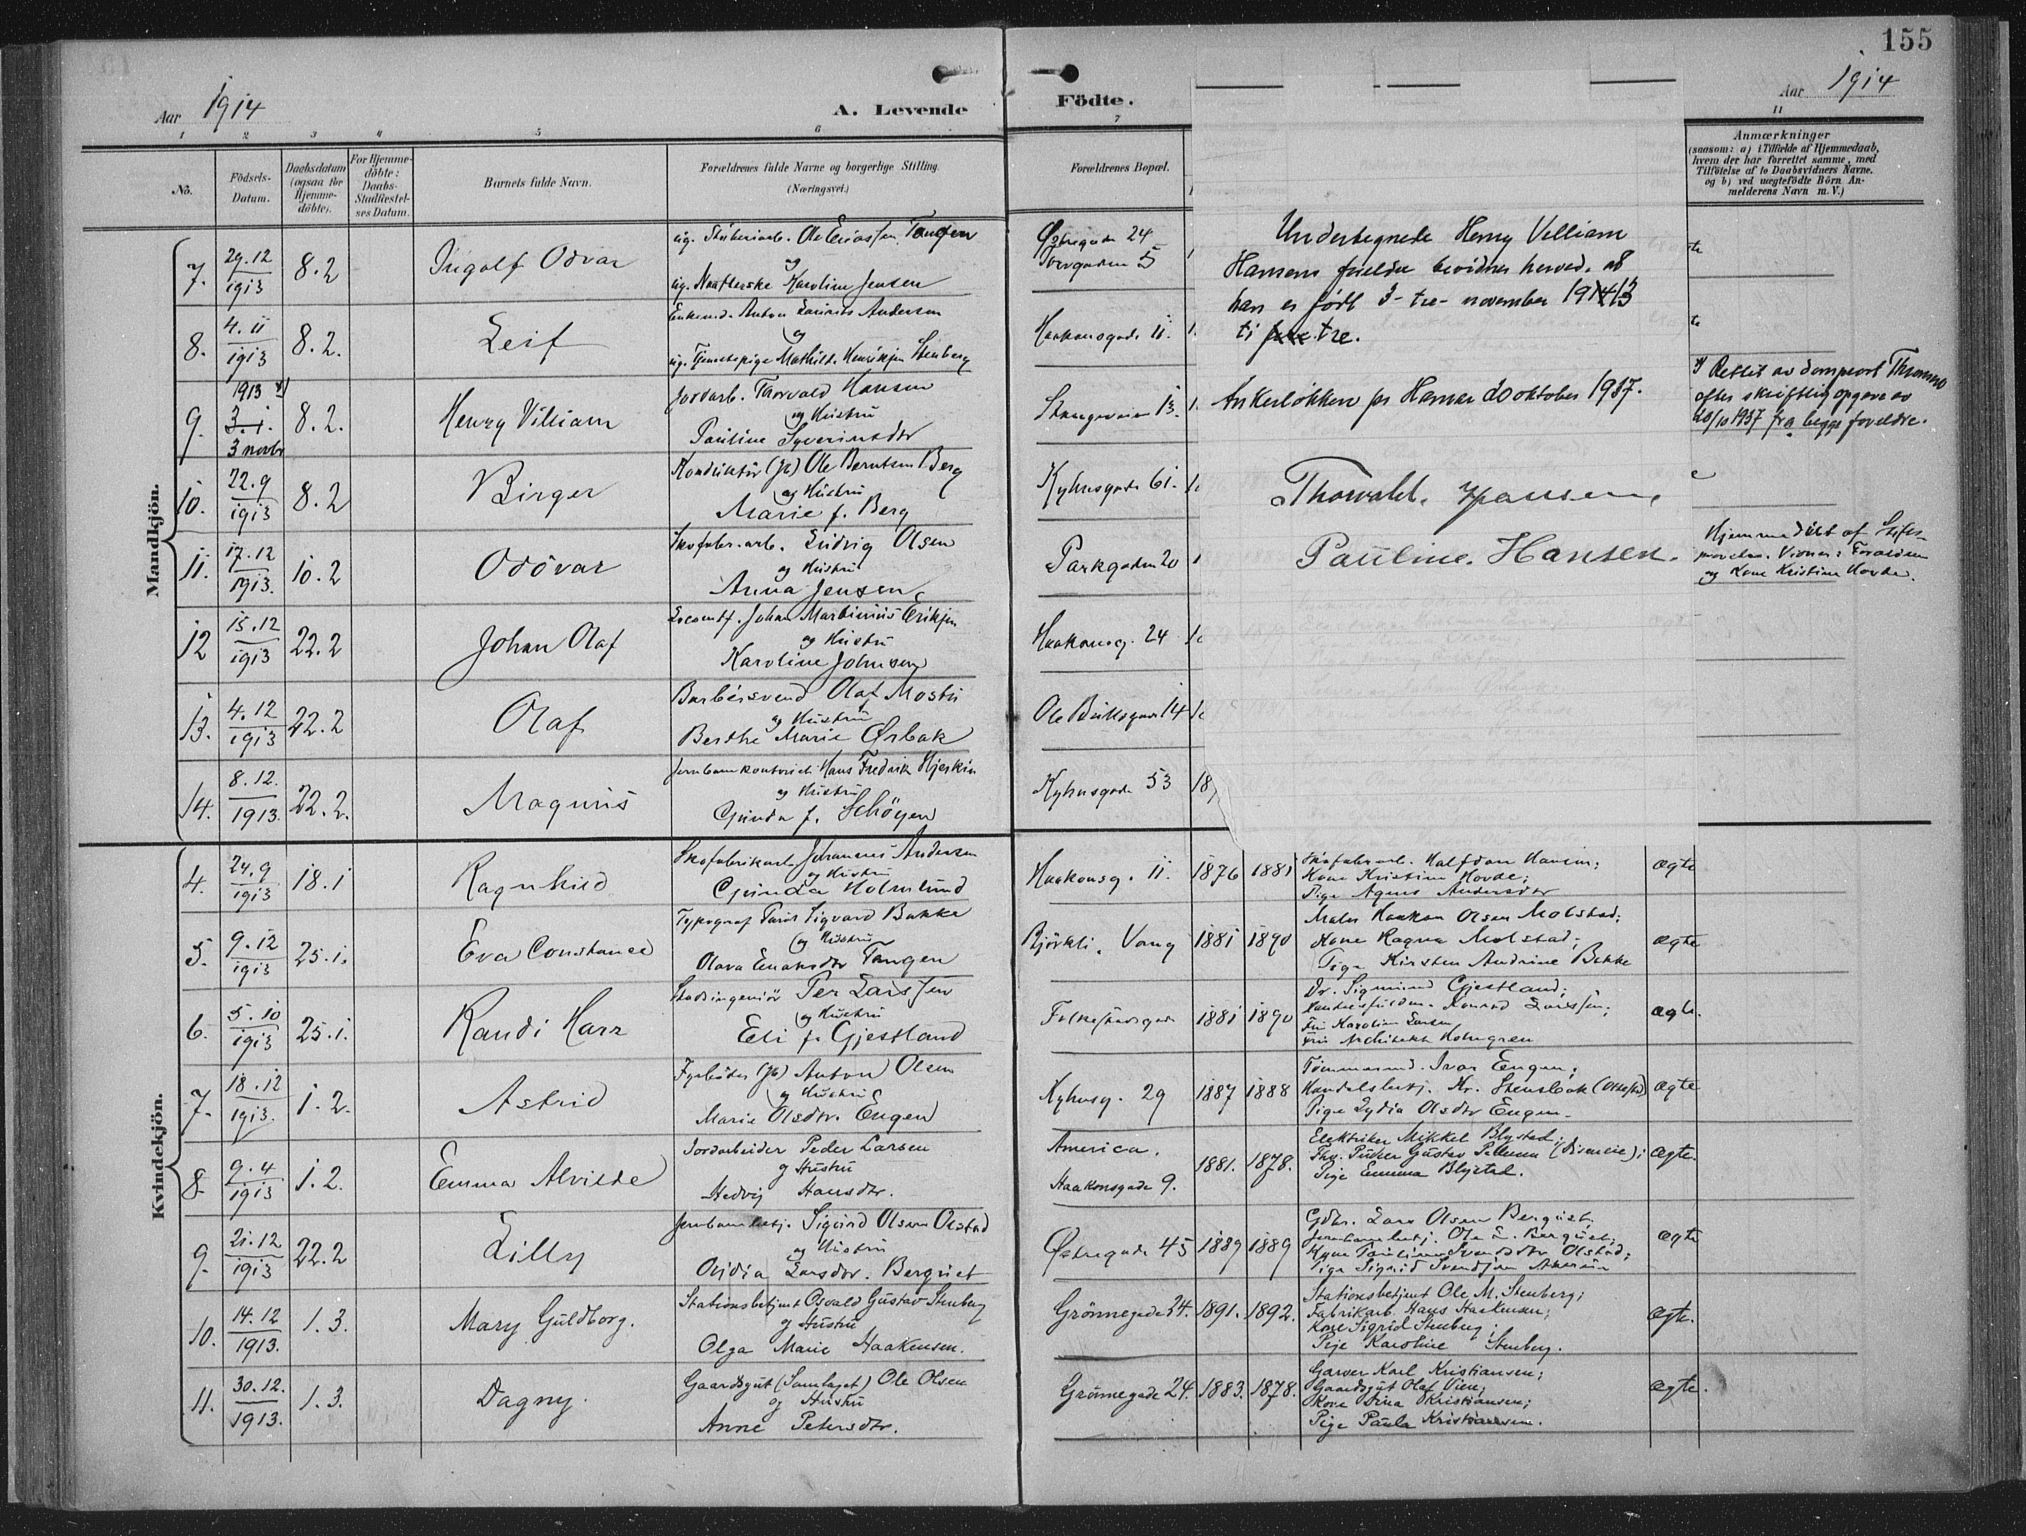 155
Aar 1914
A. Levende
Födte.
Aar 1914
1 2 3 4 5 6 7 11
No.
Födsels-Datum.
Daabsdatum (ogsaa for Hjemmedöbte).
For Hjemmedöbte: Daabs-Stadfæstelses Datum.
Barnets fulde Navn.
Forældrenes fulde Navne og borgerlige Stilling. (Næringsvei.)
Forældrenes Bopæl.
Anmærkninger
(saasom: a) i Tilfælde af Hjemmedaab,
hvem der har forrettet samme, med
Tilföielse af to Daabsvidners Navne.
og b) ved uægtefödte Börn An-
melderens Navn m. V.)
Mandkjön.
7. 29.12 1913 8.2 Ingolf Odvar
Ole Eriassen Tangen
og
Karoline Jensen
Østregade 24
Torvgaden 5
8. 4.11 1913 8.2. Leif
Enkemd. Anton Laurits Andersen
og
ug. Tjenestepige Mathilde Henriksen Stenberg
Haakonsgade 11.
9. 1913 3.1. 3 novbr 8.2. Henry Villiam
Jordarb. Thorvald Hansen
og Hustru
Pauline Syverinsdtr
Stangeveien 13.
10. 22.9 1913 8.2 Birger
Konduktör (jb) Ole Berntsen Berg
og Hustru
Marie f. Berg
Kyhnsgade 61.
11. 17.12 1913. 10.2 Oddvar
Skofabr.arb. Ludvig Olsen
og Hustru
Anna Jensen
Parkgaden 20
12 15.12 1913 22.2 Johan Olaf
Johan Martinius Eriksen
og Hustru
Karoline Johnsen
Haakonsg. 24
13. 4.12 1913 22.2 Olaf
Barbersvend Olaf Mostu
og Hustru
Berthe Marie Ørbak
14
14. 8.12. 1913. 22.2. Magnus
Hans Fredrik Hjerkin
og Hustru
Gunda f. Schöyen
Kyhnsgade 53
Undertegnede Henry Villiam
Hansens foreldre bevidner herved, at
han er født 3- tre- november 1913
ti tre.
Ankerløkken pr Hamar 20 oktober 1937.
Thorvald. Hansen.
Pauline. Hansen.
*) Rettet av domprost Thommo
efter skriftlig opgave av
20/10 1937 fra begge foreldre.
Hjemmedöbt af
og Kone Kristine Hovde.
Kvindekjön.
4. 24.9 1913 18.1 Ragnhild
Skofabrikarb. Johannes Andersen
og Hustru
Gunda Holmlund
Haakonsg. 11. 1876 1881
Skofabr.arb. Halfdan Hansen;
Kone Kristine Hovde;
Pige Agnes Andersdtr
ægte
5. 9.12 1913 25.1. Eva Constance
Typograf Sigvard Bakke
og Hustru
Olava Eriksdtr Tangen
Björkli, Vang 1881 1890
Maler Haakon Olsen Molstad;
Kone Ragna Molstad;
Pige Kirsten Andrine Bakke
ægte
6. 5.10 1913 25.1. Randi Harr
Stadsingeniör Per Larssen
og Hustru
Eli f. Gjestland
Folkestadsgade 1881 1890
Dr. Sigmund Gjestland;
Konrad Larssen;
Karoline Larsen
Architekt Holmgren
ægte.
7. 18.12 1913. 1.2. Astrid
Fyrböder (jb) Anton Olsen
og Hustru
Marie Olsdtr. Engen
Kyhnsg. 29 1887 1888
Tömmermd. Ivar Engen;
Handelsbetj. Kr. Stensbak (Ottestad)
Pige Lydia Olsdtr Engen.
ægte
8. 9.4 1913 1.2. Emma Alvilde
Jordarbeider Peder Larsen
og Hustru
Hedvig Hansdtr.
America.
Haakonsgade 9. 1881. 1878.
Elektriker Mikkel Blystad;
Gustav
Pige Emma Blystad.
ægte.
9. 21.12 1913 22.2 Lilly
Jernbanebetj. Sigurd Olsen Olstad
og Hustru
Ovidia Larsdtr. Bergset
Østregade 45 1889 1889
Gdbr. Lars Olsen Bergset;
Jernbanebetj. Ole L. Bergset;
Kone Pauline Svendsdtr Olstad;
Pige Sigrid Svendsen
ægte
10. 14.12 1913. 1.3. Mary Guldborg.
Stationsbetjent Osvald Gustav Stenberg
og Hustru
Olga Marie Haakensen.
Grönnegade 24. 1891. 1892.
Stationsbetjent Ole M. Stenberg;
Fabrikarb. Hans Haakensen;
Kone Sigrid Stenberg;
Pige Karoline Stenberg.
ægte.
11. 30.12. 1913. 1.3. Dagny.
Gaardsgut (Samlaget) Ole Olsen
og Hustru
Anne Petersdtr.
Grönnegade 24. 1883. 1878.
Garver Karl Kristiansen;
Gaardsgut Olaf Vien;
Kone Dina Kristiansen;
Pige Paula Kristiansen.
ægte.